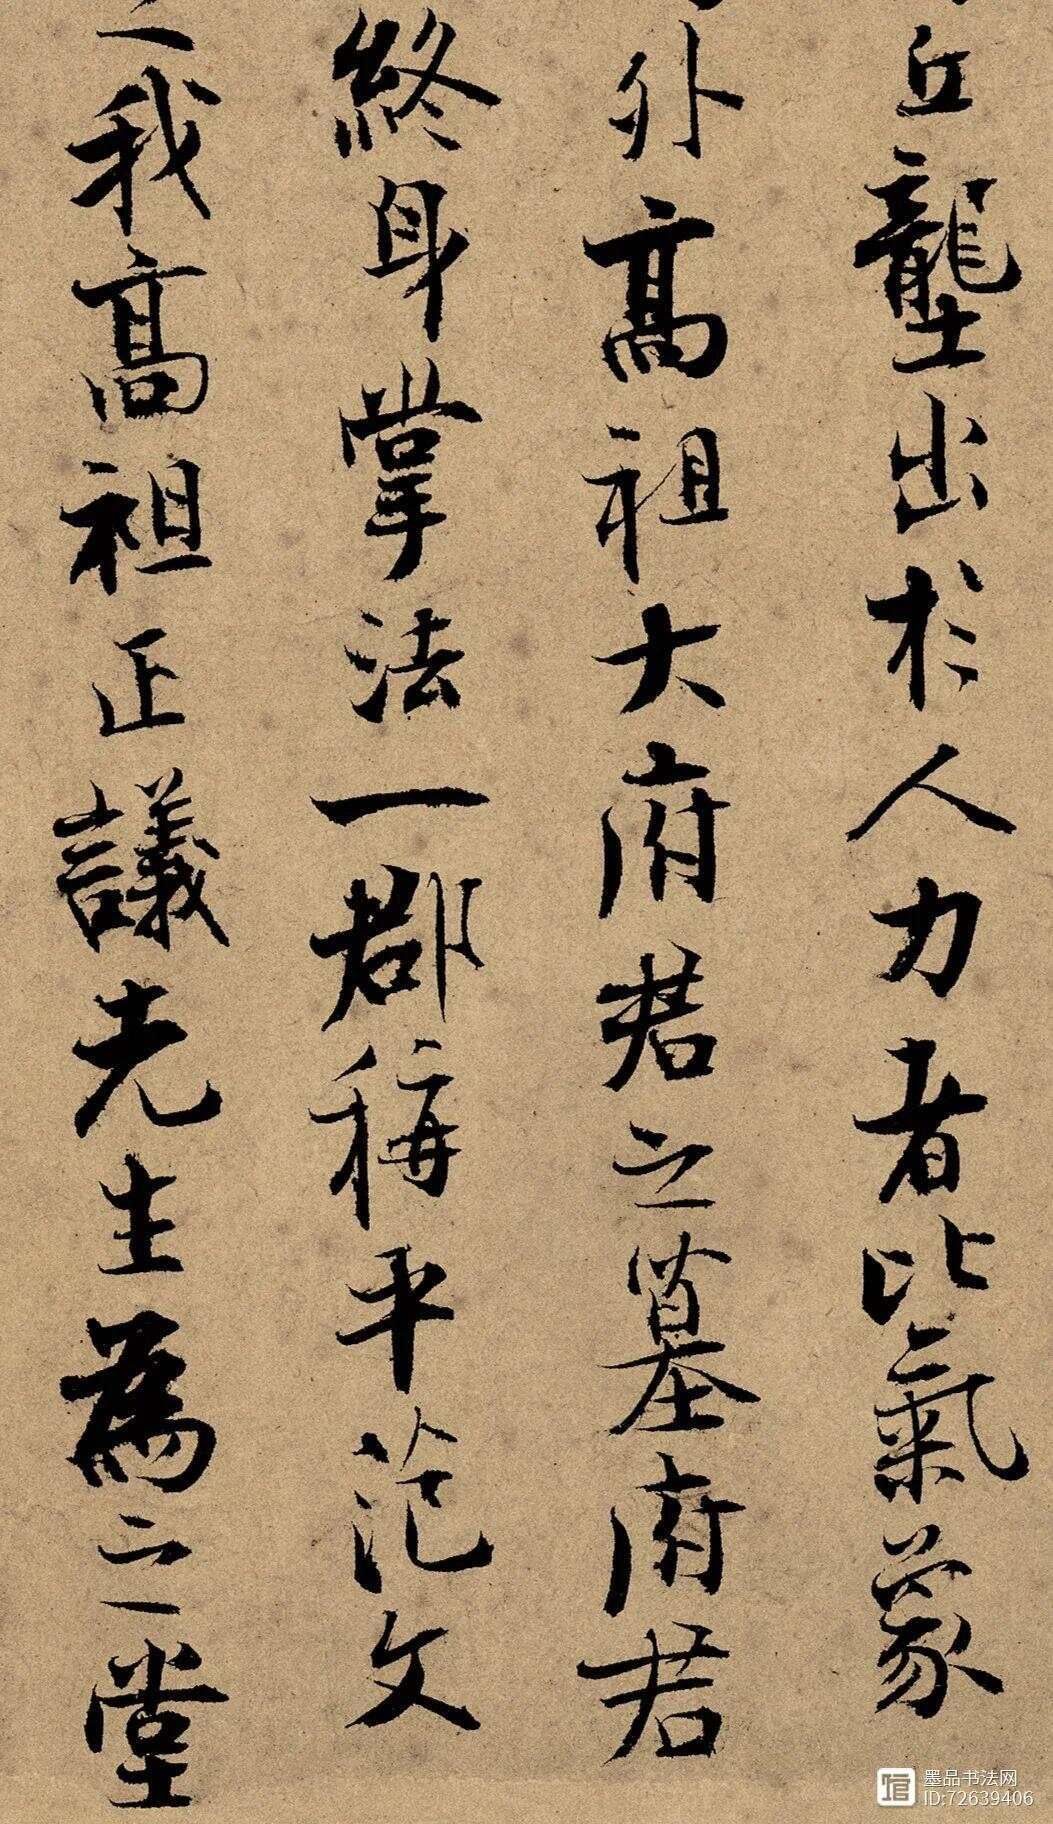 丘壟出於人力者比氣象
外高祖大府君之墓府君
終身掌法一郡稱平范文
之我高祖正議先生為之堂
墨品书法网
ID:72639406